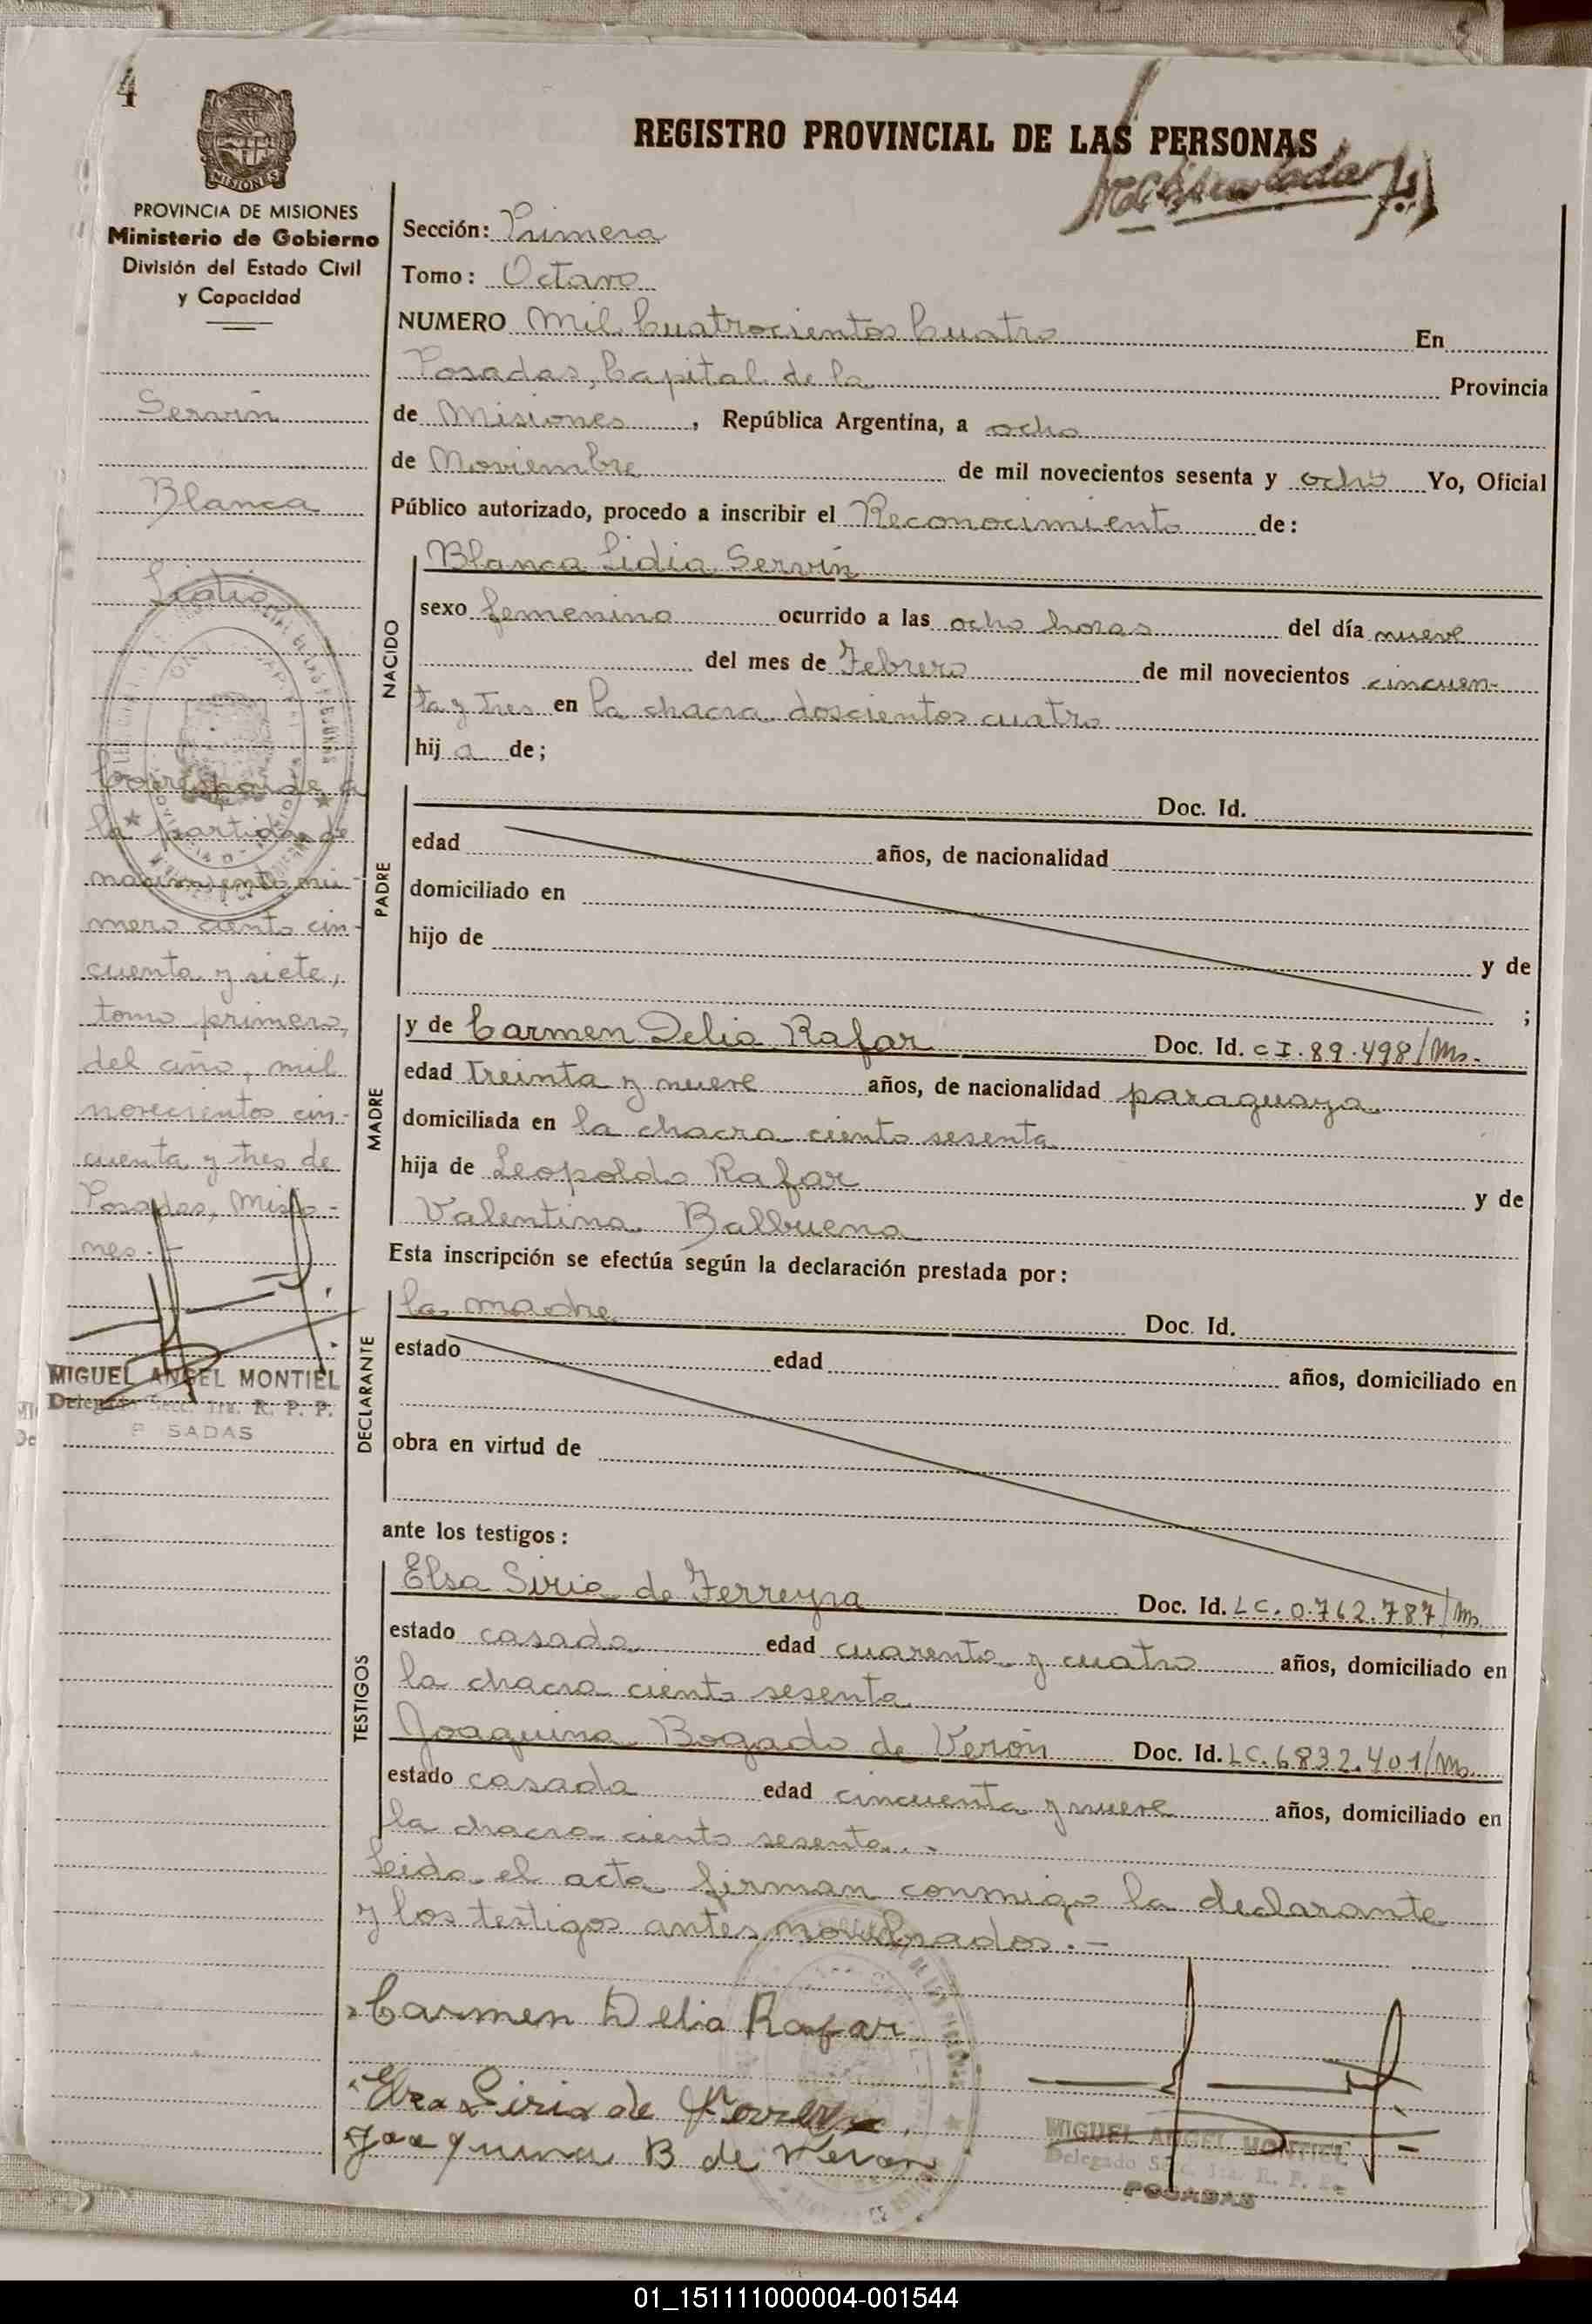 4
REGISTRO PROVINCIAL DE LAS PERSONAS
MISIONES
PROVINCIA DE MISIONES
Ministerio de Gobierno
División del Estado Civil
y Capacidad
Servín
Blanca
Lidia
Corresponde a
la partida de
nacimiento nú-
mero ciento cin-
cuenta y siete,
tomo primero,
del año, mil
novecientos cin-
cuenta y tres de
Posadas, Misio-
nes.-
MIGUEL ANGEL MONTIEL
Delegado Secc. 1ra. R. P. P.
POSADAS
Sección: Primera
Tomo: Octavo
NUMERO Mil Cuatrocientos Cuatro En
Posadas, Capital de la Provincia
de Misiones, República Argentina, a ocho
de Noviembre de mil novecientos sesenta y ocho Yo, Oficial
Público autorizado, procedo a inscribir el Reconocimiento de:
NACIDO
Blanca Lidia Servín
sexo femenino ocurrido a las ocho horas del día nueve
del mes de Febrero de mil novecientos cincuen-
ta y tres en la chacra doscientos cuatro
hij a de;
PADRE
Doc. Id.
edad años, de nacionalidad
domiciliado en
hijo de y de
;
MADRE
y de Carmen Delia Rafar Doc. Id. CI.89.498/Ms.
edad treinta y nueve años, de nacionalidad paraguaya
domiciliada en la chacra ciento sesenta
hija de Leopoldo Rafar y de
Valentina Balbuena
Esta inscripción se efectúa según la declaración prestada por:
DECLARANTE
la madre Doc. Id.
estado edad años, domiciliado en
obra en virtud de
ante los testigos:
TESTIGOS
Elsa Siria de Ferreyra Doc. Id. LC.0.762.787/Ms.
estado casada edad cuarenta y cuatro años, domiciliado en
la chacra ciento sesenta
Joaquina Bogado de Verón Doc. Id. LC.6832.401/Ms.
estado casada edad cincuenta y nueve años, domiciliado en
la chacra ciento sesenta.-
Leida el acta firman conmigo la declarante
y los testigos antes nombrados.-
Carmen Delia Rafar
Siria de
Joaquina B de Veron
MIGUEL ANGEL MONTIEL
Delegado Secc. 1ra. R. P. P.
POSADAS
01_151111000004-001544